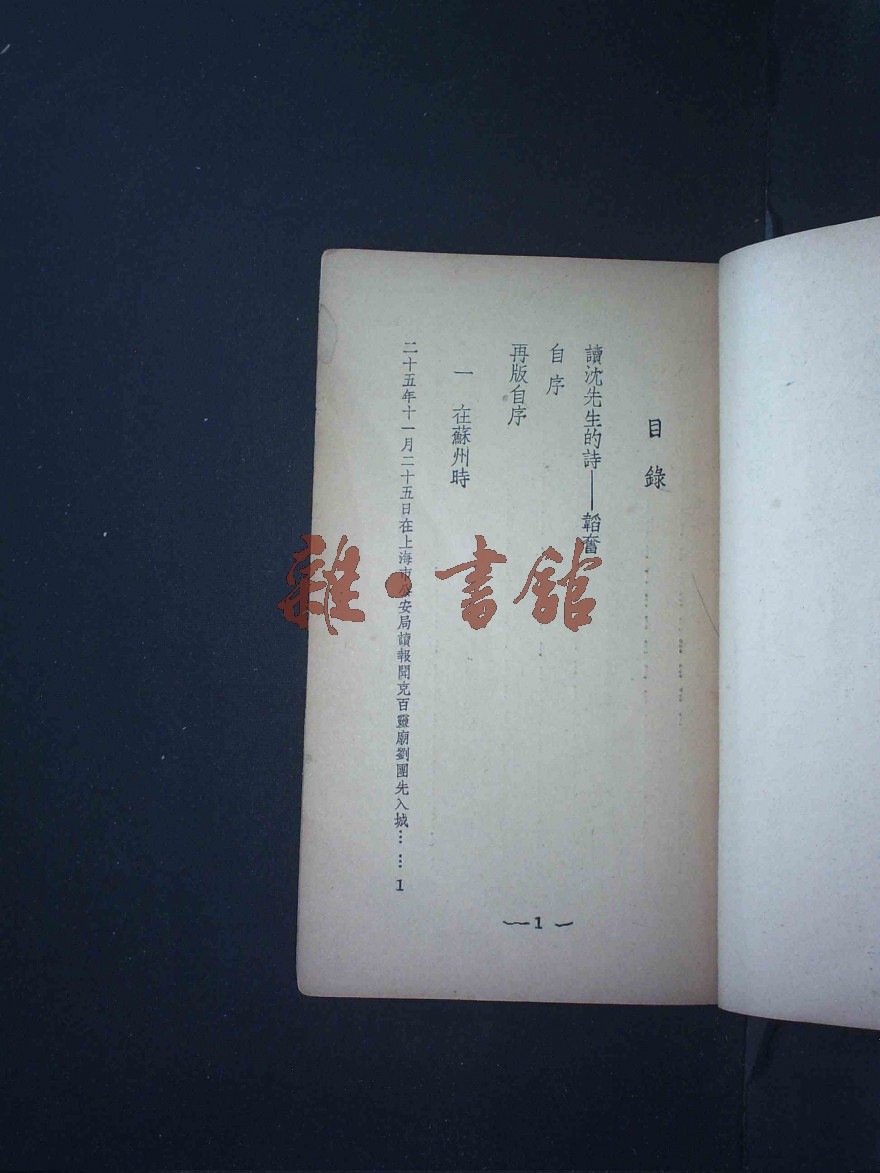 目錄
讀沈先生的詩——韜奮
自序
再版自序
一 在蘇州時
二十五年十一月二十五日在上海市公安局讀報聞克百靈廟劉團先入城……1
—1—
雜·書館